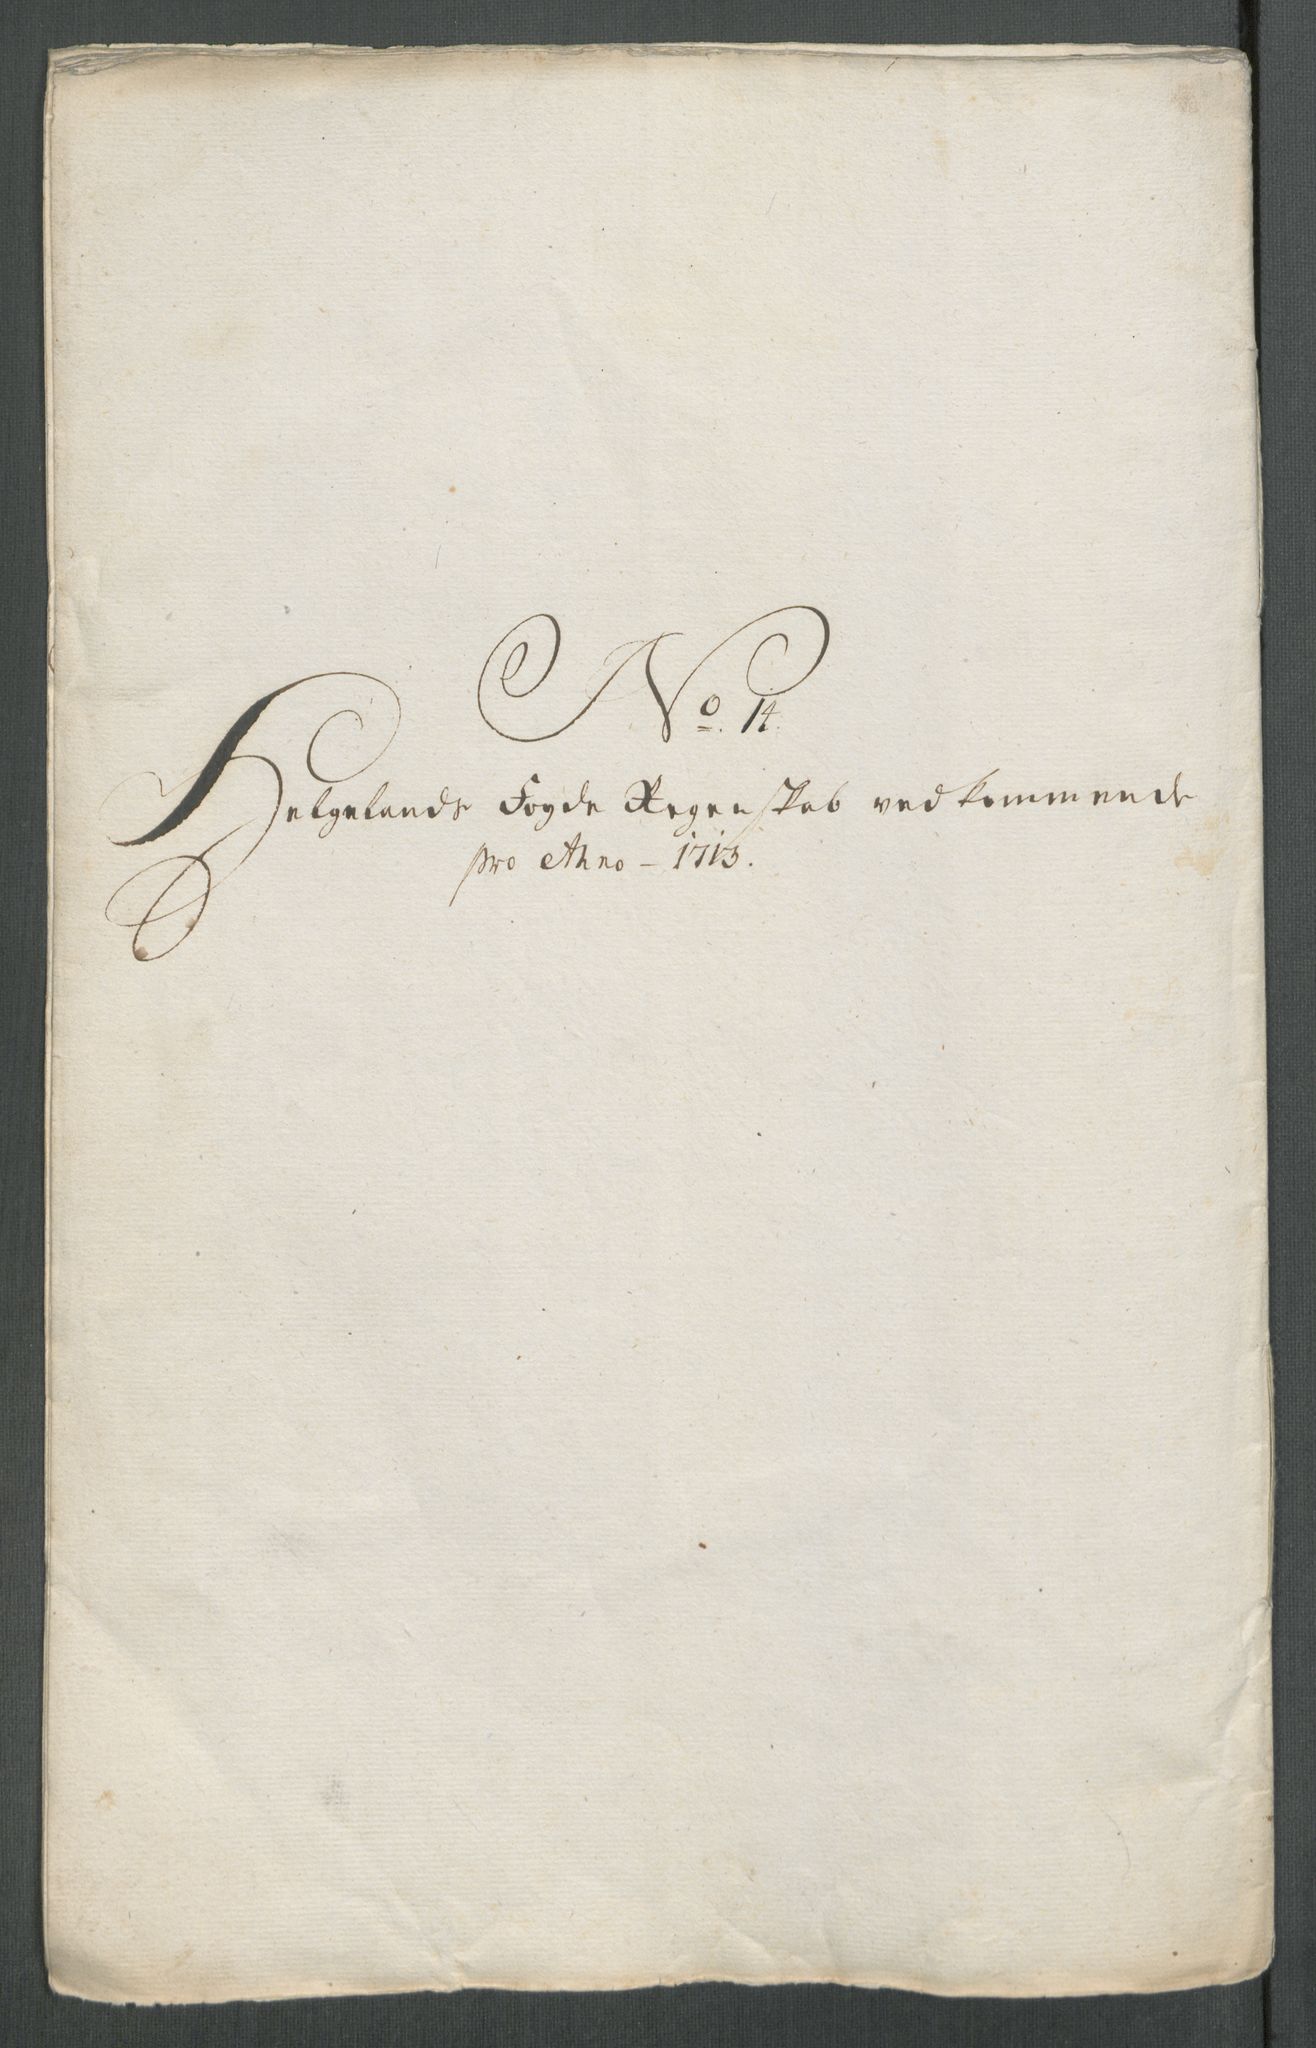 No. 14.
Helgelands Fogde Regenskab vedkommende
pro Anno - 1713.